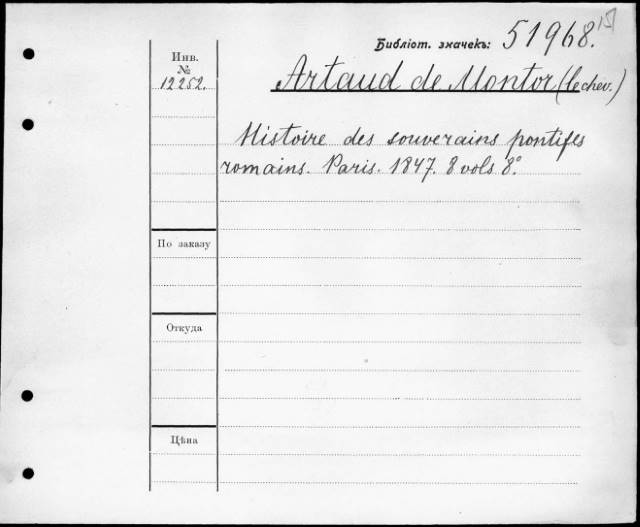 15
Библіот. значекъ: 51968.
Инв.
№
12252.
Artaud de Montor (le chev.)
Histoire des souverains pontifes
romains. Paris. 1847. 8 vols. 8°.
По заказу
Откуда
Цѣна